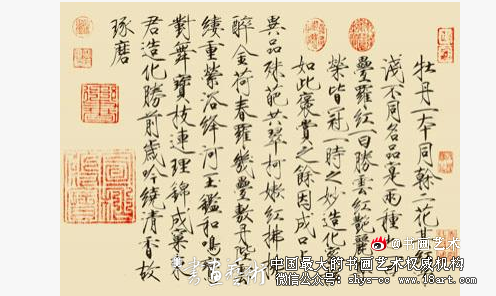 牡丹一本同幹二花其
淺不同名品實兩種也一
疊羅紅一曰勝雲紅艷麗
榮皆冠一時之妙造化密
如此褒賞之餘因成口
異品殊葩共翠柯嫩紅拂拂
醉金荷春羅幾疊敷丹陛雲
縷重縈浴絳河玉鑑和鳴鸞
對舞寶枝連理錦成窠東
君造化勝前歲吟繞清香故
琢磨
@书画艺术
書畫藝術
中国最大的书画艺术权威机构
微信公众号：shys-cc